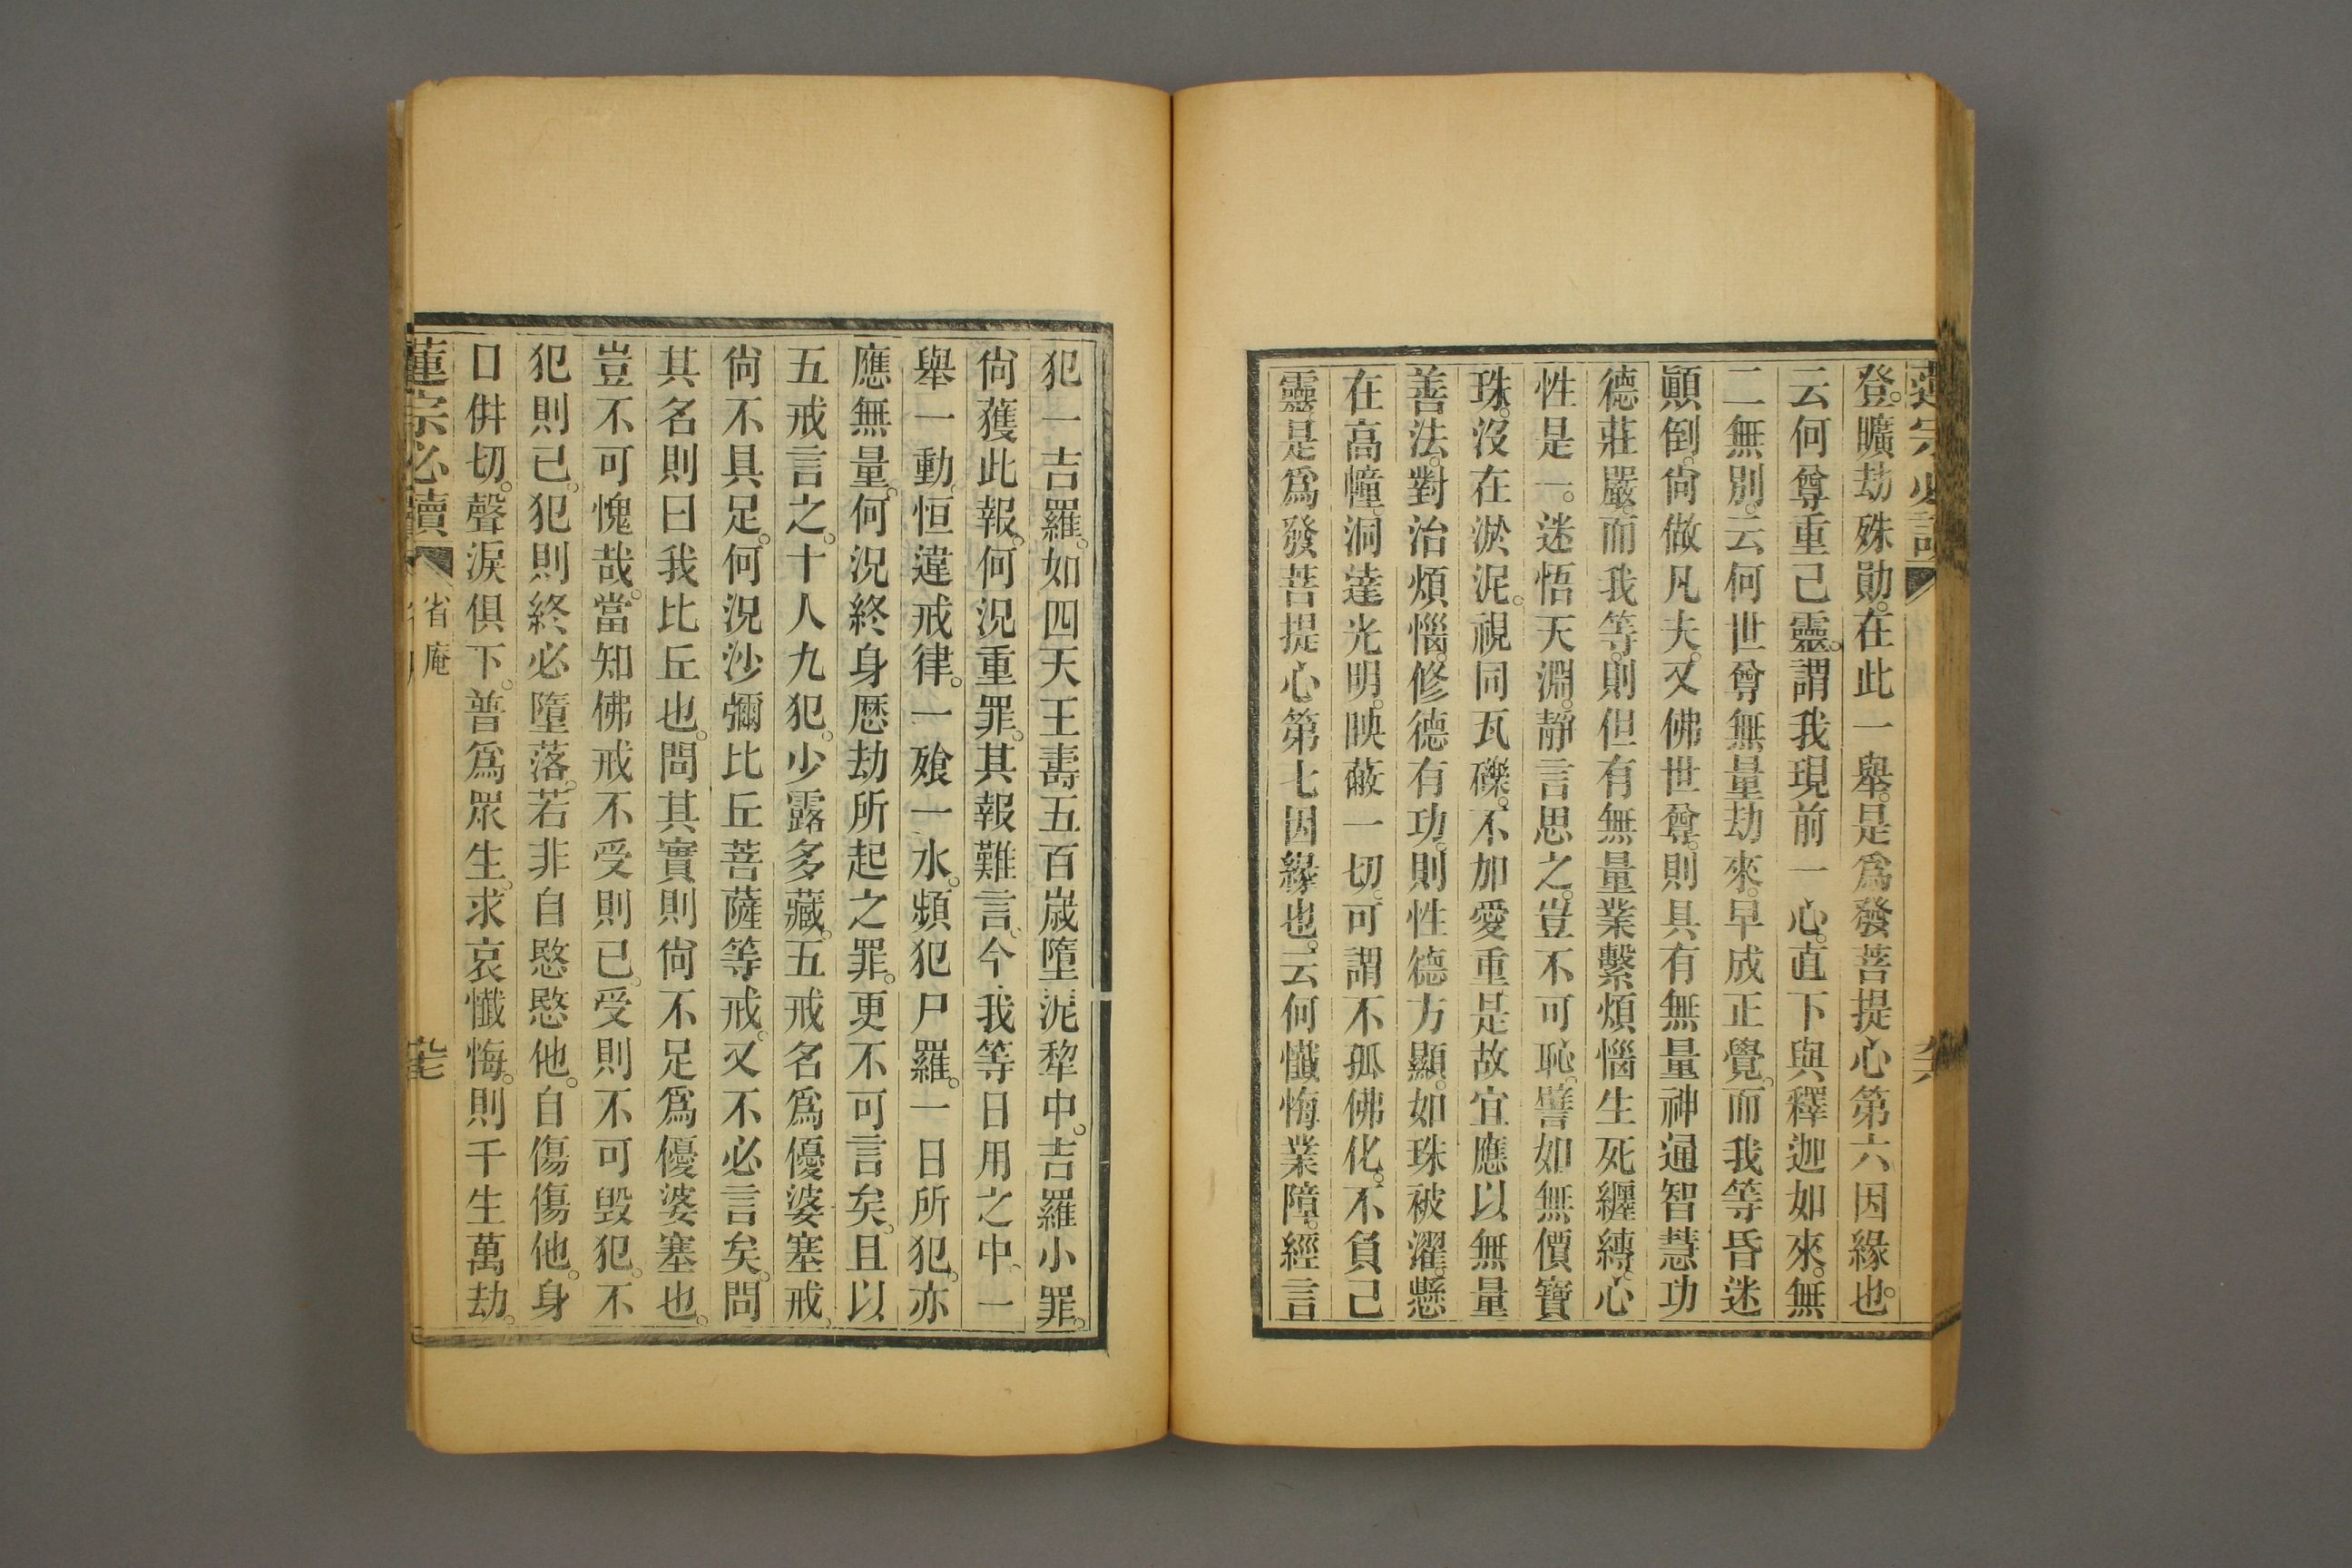 蓮宗必讀
登。曠劫殊勛。在此一舉。是爲發菩提心第六因緣也。
云何尊重己靈。謂我現前一心。直下與釋迦如來。無
二無別。云何世尊無量劫來。早成正覺。而我等昏迷
顚倒。尙做凡夫。又佛世尊。則具有無量神通智慧功
德莊嚴。而我等。則但有無量業繫煩惱生死纏縛。心
性是一。迷悟天淵。靜言思之。豈不可恥。譬如無價寶
珠。沒在淤泥。視同瓦礫。不加愛重是故宜應以無量
善法。對治煩惱。修德有功。則性德方顯。如珠被濯。懸
在高幢。洞達光明。映蔽一切。可謂不孤佛化。不負己
靈是爲發菩提心第七因緣也。云何懺悔業障。經言
犯一吉羅。如四天王壽五百歲墮泥犂中。吉羅小罪。
尙獲此報。何況重罪。其報難言。今我等日用之中、一
舉一動、恒違戒律。一飧一水。頻犯尸羅。一日所犯。亦
應無量。何況終身歷劫所起之罪。更不可言矣。且以
五戒言之。十人九犯。少露多藏。五戒名爲優婆塞戒、
尙不具足。何況沙彌比丘菩薩等戒。又不必言矣。問
其名則曰我比丘也。問其實則尙不足爲優婆塞也。
豈不可愧哉。當知佛戒不受則已。受則不可毀犯。不
犯則已。犯則終必墮落。若非自愍愍他。自傷傷他。身
口倂切。聲淚俱下。普爲眾生。求哀懺悔。則千生萬劫。
蓮宗必讀
省庵